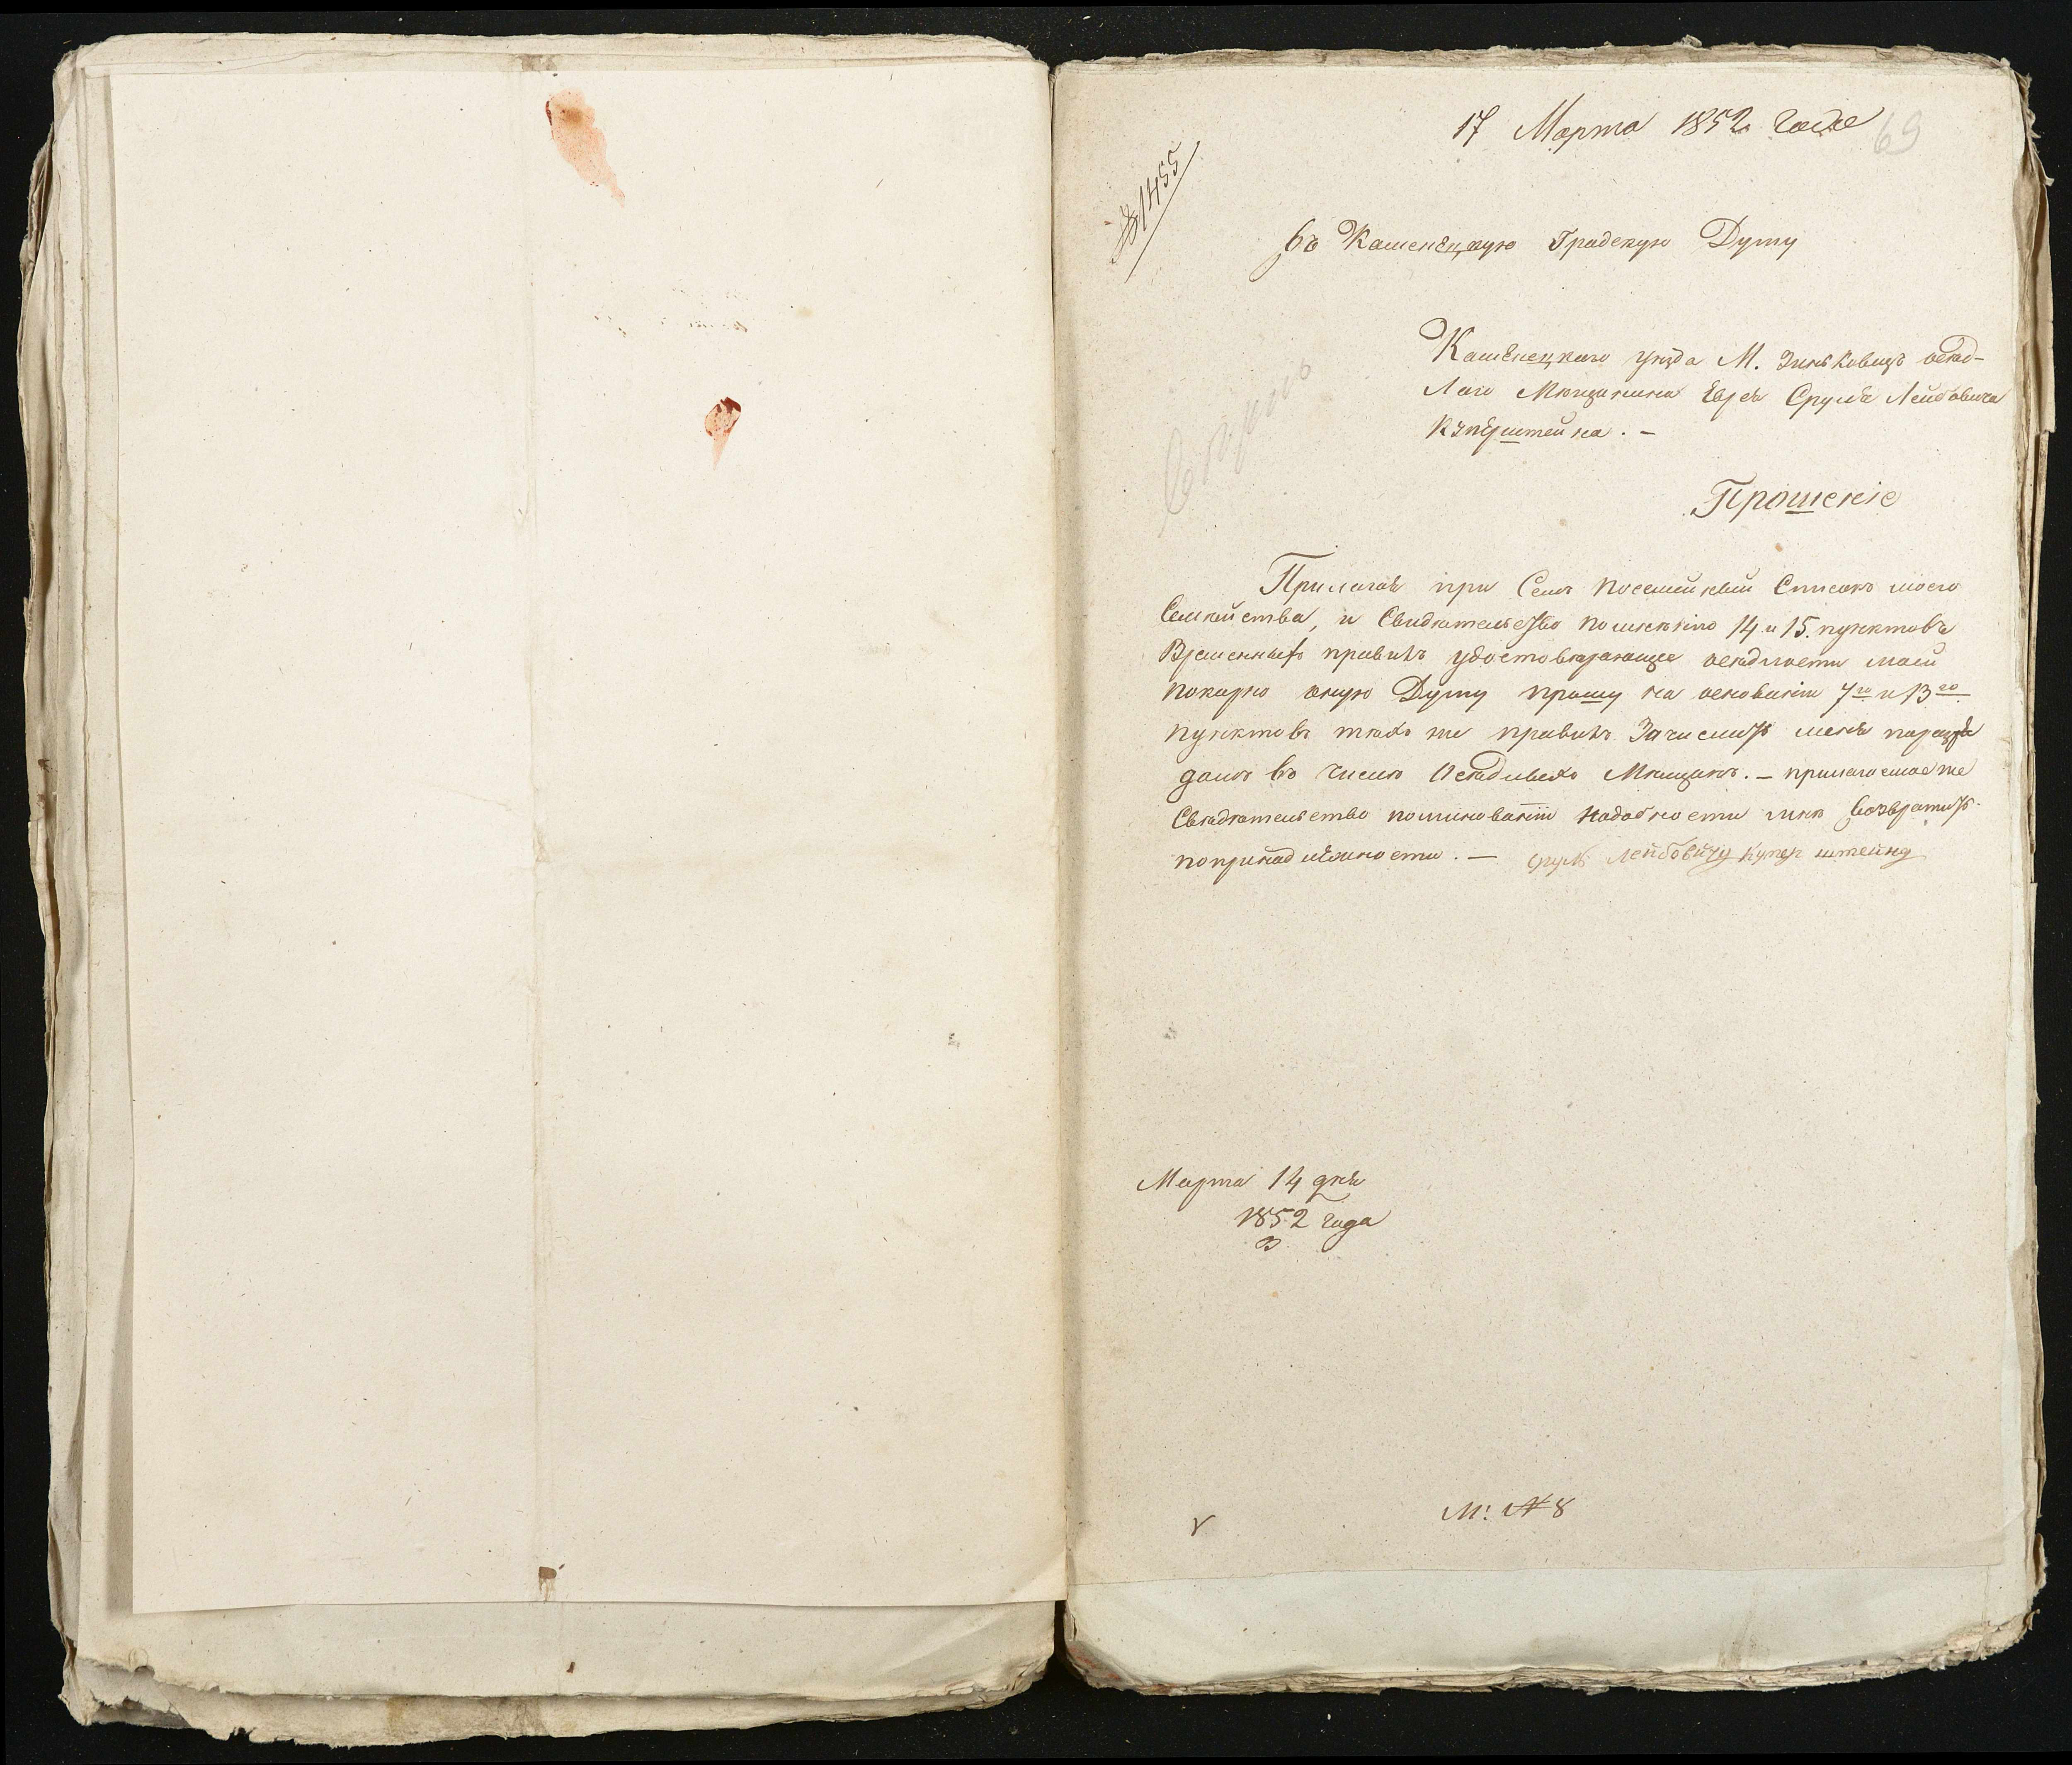 17 Марта 1852 года
69
№ 1455
Въ Каменецкую Градскую Думу
Каменецкаго уезда М. Зиньковецъ осед-
лаго Мещанина Еврея Сруля Лейбовича
Куперштейна. —
Прошеніе
Прилагая при Семъ посемейный Списокъ моего
Семейства, и Свидетельство по мненію 14 и 15. пунктовъ
Временныхъ правилъ удостоверяющее оседлости моей
покорно оную Думу прошу на основаніи 7го и 13го
пунктовъ техъ же правилъ Зачислить меня
домъ въ число Оседлыхъ Мещанъ. — прилагаемое же
Свидетельство по минованіи надобности мне возвратить
по принадлежности. — Сруль Лейбовичу Купер штейнд
Марта 14 дня
1852 года
М: № 8